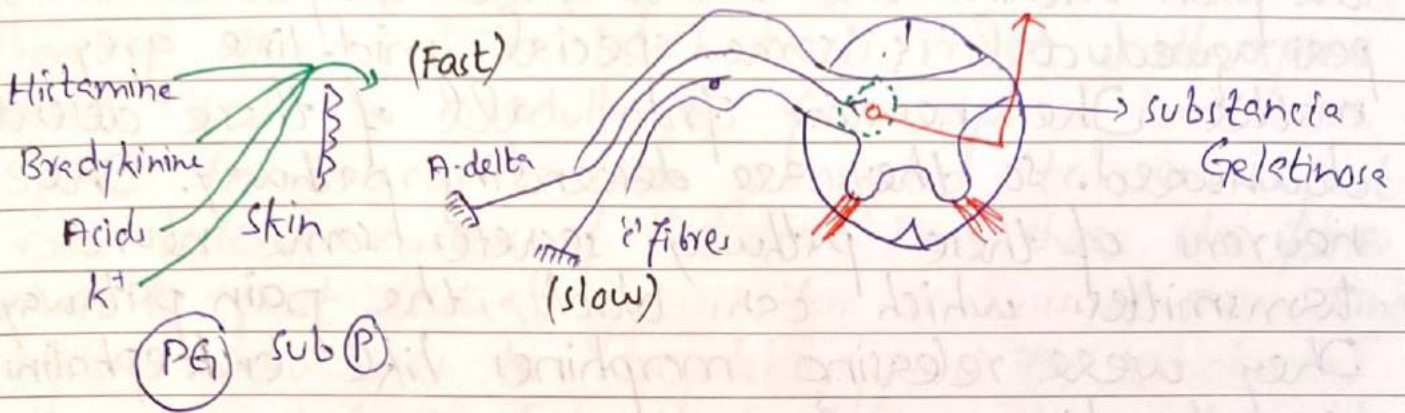 Histamine
Bradykinine
Acids
K+
Skin
PG Sub P
(Fast)
A-delta
'c' Fibres
(slow)
substancia
Geletinosa